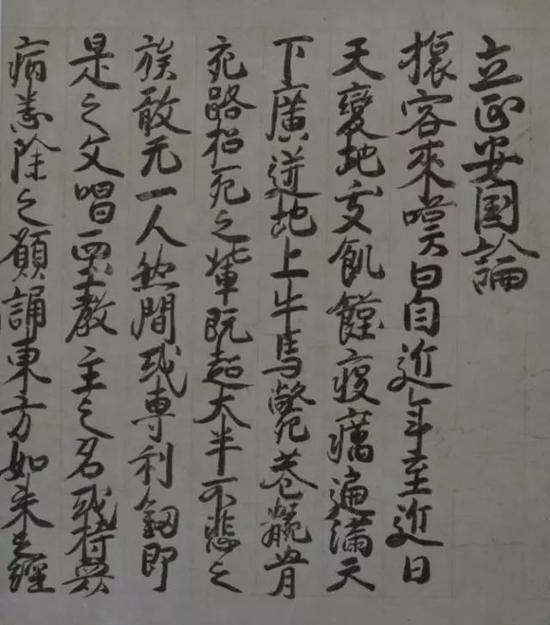 立正安国論
旅客來嘆曰自近年至近日
天變地夭飢饉疫癘遍滿天
下廣迸地上牛馬斃巷骸骨
充路招死之輩既超大半不悲之
族敢无一人然間或専利釼即
是之文唱西土教主之名或持衆
病悉除之願誦東方如来之經